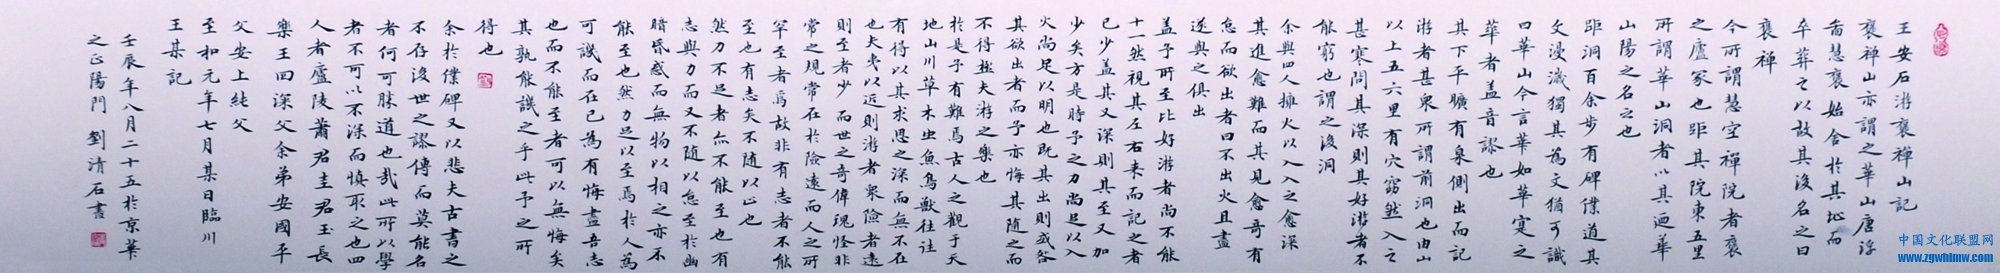 王安石游褒禅山記
褒禅山亦謂之華山唐浮
啚慧褒始舍於其址而
卒葬之以故其後名之曰
褒禅
今所謂慧空禅院者褒
之廬冢也距其院東五里
所謂華山洞者以其迺華
山陽之名名之也
距洞百余步有碑僕道其
文漫滅獨其為文猶可識
曰華山今言華如華寔之
華者蓋音謬也
其下平曠有泉側出而記
游者甚衆所謂前洞也由山
以上五六里有穴窈然入之
甚寒問其深則其好游者不
能窮也謂之後洞
余與四人擁火以入入之愈深
其進愈難而其見愈奇有
怠而欲出者曰不出火且盡
遂與之俱出
蓋予所至比好游者尚不能
十一然視其左右来而記之者
已少蓋其又深則其至又加
少矣方是時予之力尚足以入
火尚足以明也既其出則或咎
其欲出者而予亦悔其随之而
不得極夫游之樂也
於是予有難焉古人之觀于天
地山川草木虫魚鳥獸往往
有得以其求思之深而無不在
也夫夷以近則游者衆險者遠
則至者少 而世之奇偉瑰怪非
常之规常在於險遠而人之所
罕至者焉故非有志者不能
至也有志矣不随以止也
然力不足者亦不能至也有
志與力而又不随以怠至於幽
暗昏惑而無物以相之亦不
能至也然力足以至焉於人為
可譏而在已為有悔盡吾志
也而不能至者可以無悔矣
其孰能譏之乎此予之所
得也
余於僕碑又以悲夫古書之
不存後世之謬傳而莫能名
者何可勝道也哉此所以學
者不可以不深而慎取之也四
人者廬陵蕭君圭君玉長
樂王回深父余弟安國平
父安上純父
至和元年七月某日臨川
王某記
壬辰年八月二十五於京華
之正陽門 劉清石書
中国文化联盟网
www.zgwhlmw.com